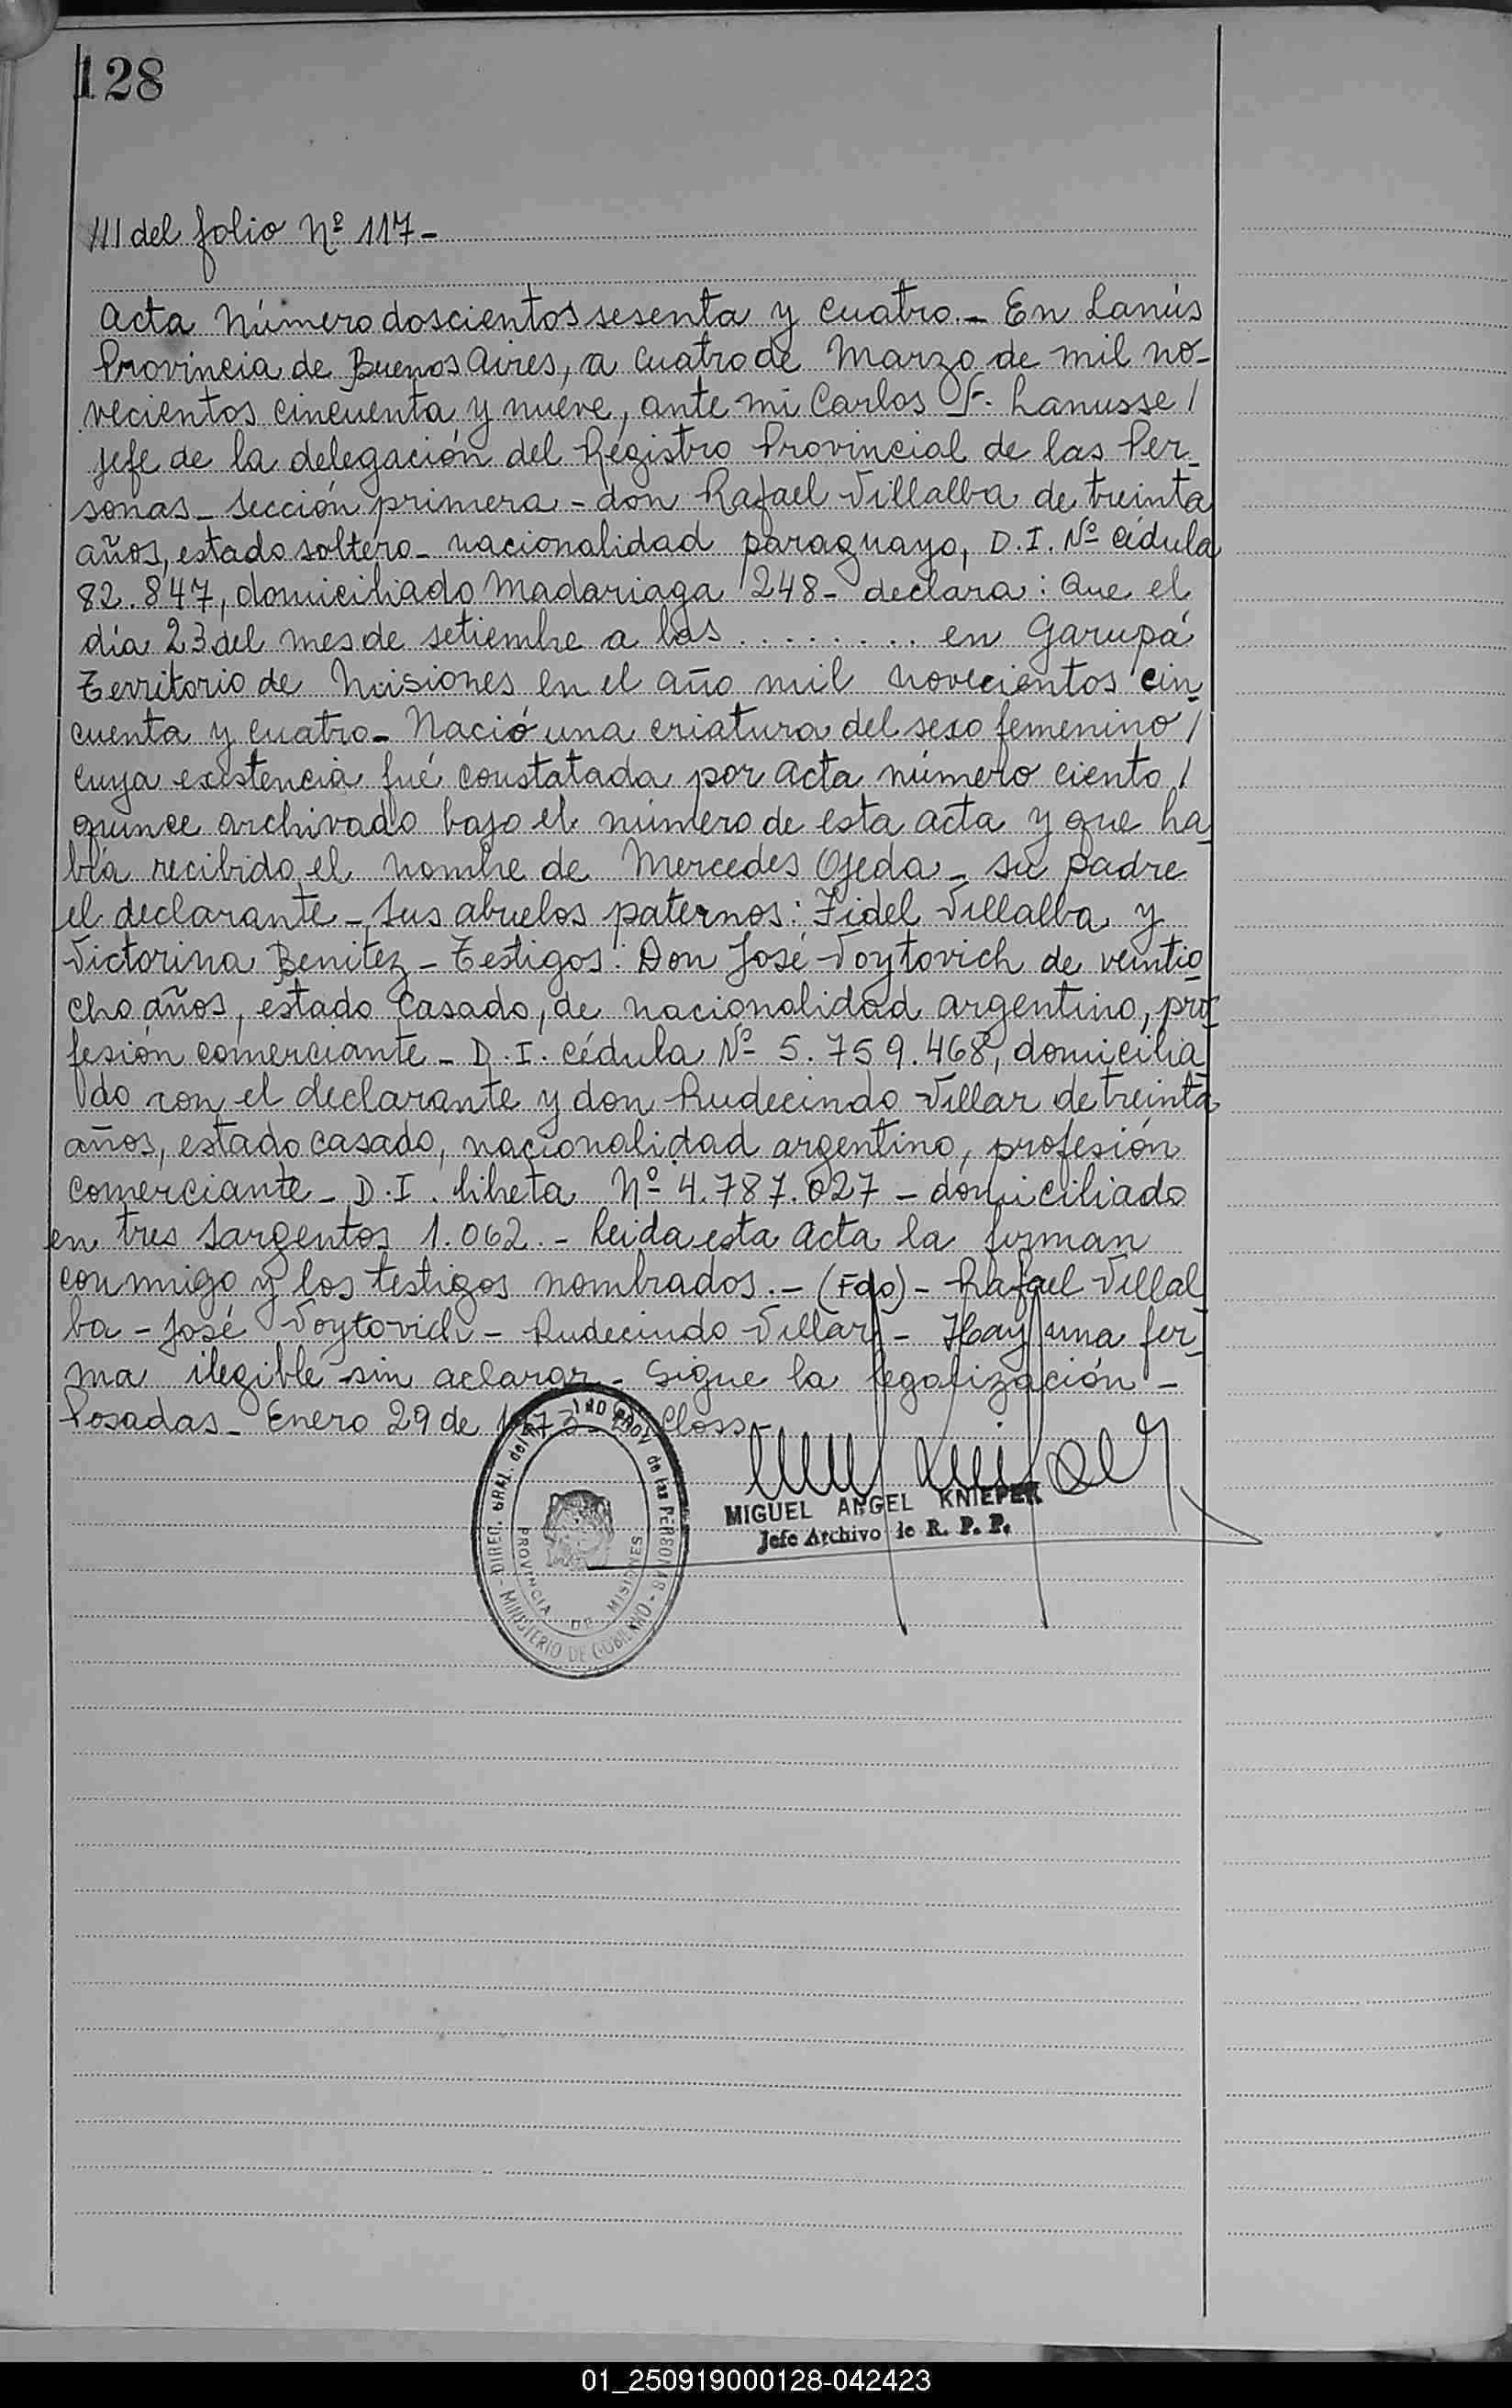 128
/// del folio Nº 117-
Acta Número doscientos sesenta y cuatro.- En Lanús
Provincia de Buenos Aires, a cuatro de Marzo de mil no-
vecientos cincuenta y nueve, ante mi Carlos F. Lanusse /
jefe de la delegación del Registro Provincial de las Per-
sonas - Sección primera - don Rafael Villalba de treinta
años, estado soltero - nacionalidad paraguayo, D.I. Nº cédula
82.847, domiciliado Madariaga 248 - declara: Que el
día 23 del mes de setiembre a las ......... en Garupá
Territorio de Misiones en el año mil novecientos cin-
cuenta y cuatro - Nació una criatura del sexo femenino /
cuya existencia fué constatada por acta número ciento /
quince archivado bajo el número de esta acta y que ha-
bía recibido el nombre de Mercedes Ojeda - su padre
el declarante - Sus abuelos paternos: Fidel Villalba y
Victorina Benitez - Testigos: Don José Voytovich de veintio-
cho años, estado casado, de nacionalidad argentino, pro-
fesión comerciante - D.I. cédula Nº 5.759.468, domicilia-
do con el declarante y don Rudecindo Villar de treinta
años, estado casado, nacionalidad argentino, profesión
comerciante - D.I. libreta Nº 4.787.027 - domiciliado
en tres Sargentos 1.062.- Leida esta Acta la firman
conmigo y los testigos nombrados.- (Fdo) - Rafael Villal-
ba - José Voytovich - Rudecindo Villar - Hay una fir-
ma ilegible sin aclarar - Sigue la legalización -
Posadas - Enero 29 de 1973 - Closs -
MIGUEL ANGEL KNIEPER
Jefe Archivo de R. P. P.
DIREC. GRAL. del PROV. de las PERSONAS
MINISTERIO DE GOBIERNO
PROVINCIA DE MISIONES
01_250919000128-042423